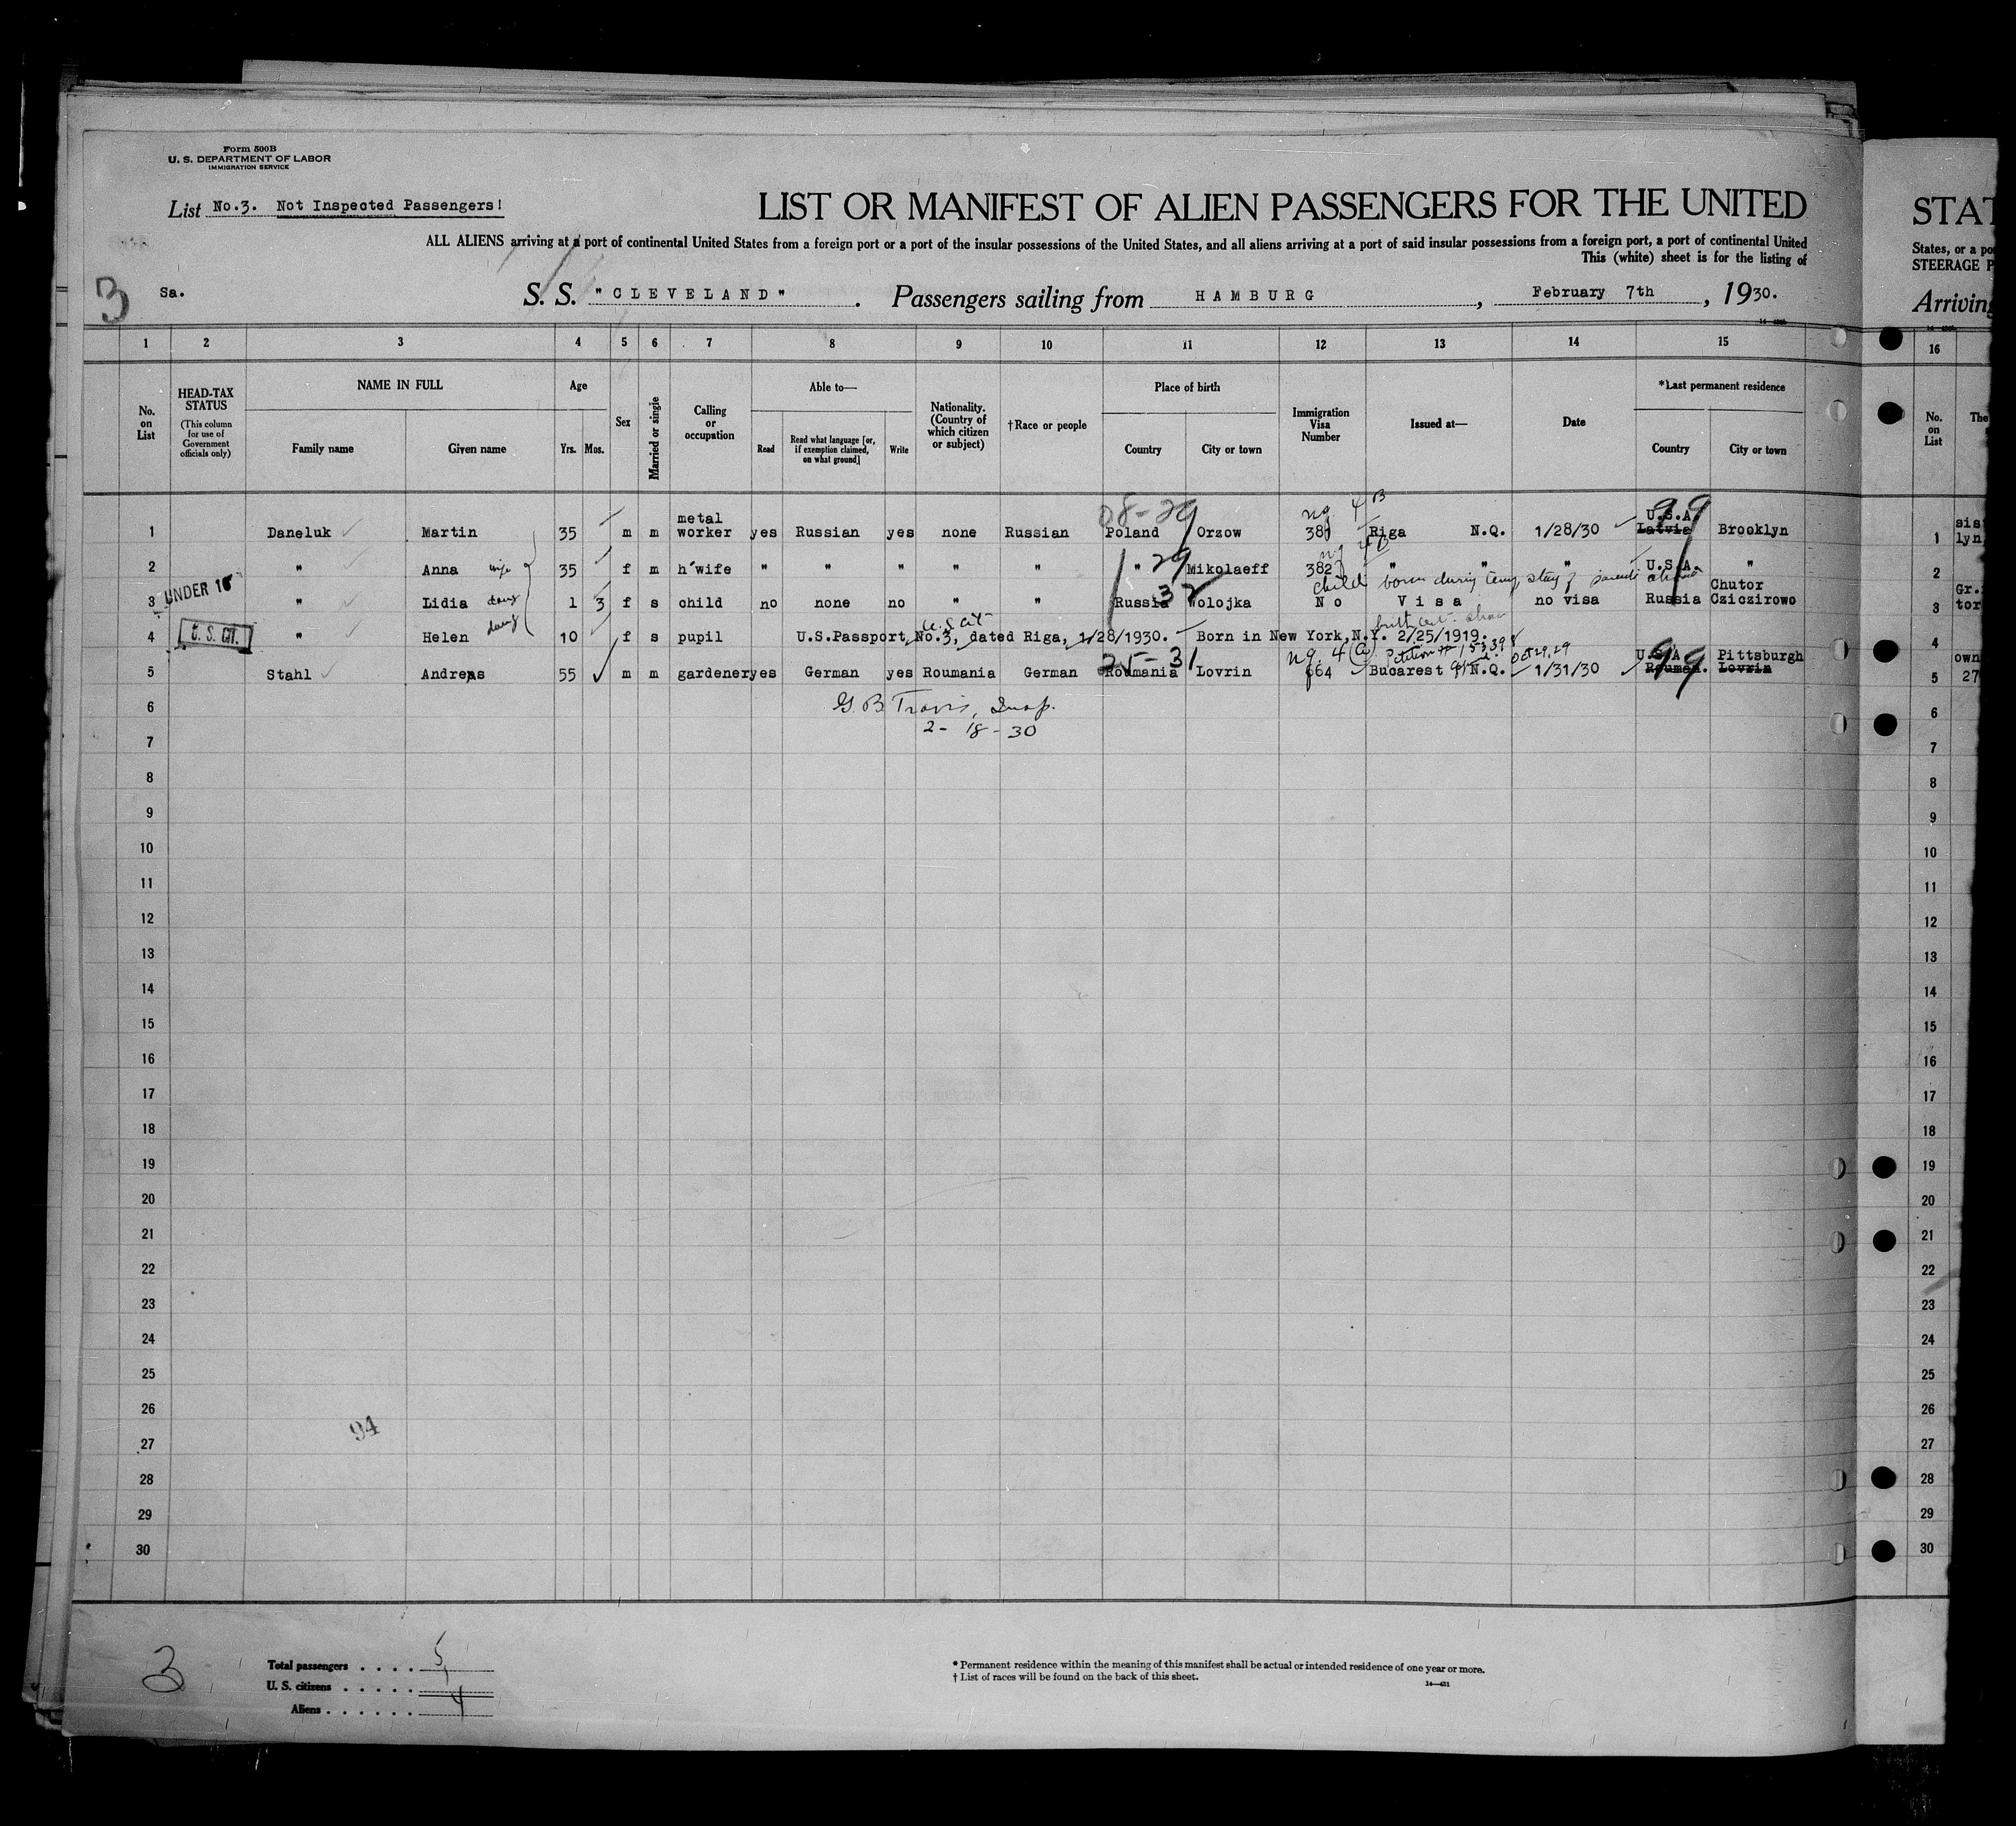 Form 500B
U. S. DEPARTMENT OF LABOR
IMMIGRATION SERVICE
List No.3. Not Inspected Passengers!
LIST OR MANIFEST OF ALIEN PASSENGERS FOR THE UNITED
STAT
ALL ALIENS arriving at a port of continental United States from a foreign port or a port of the insular possessions of the United States, and all aliens arriving at a port of said insular possessions from a foreign port, a port of continental United
States, or a po
This (white) sheet is for the listing of
STEERAGE P
3 Sa. S. S. "CLEVELAND" . Passengers sailing from HAMBURG , February 7th , 1930.
Arriving
1 2 3 4 5 6 7 8 9 10 11 12 13 14 15 16
No. on List
HEAD-TAX STATUS
(This column for use of Government officials only)
NAME IN FULL
Family name Given name
Age
Yrs. Mos.
Sex
Married or single
Calling or occupation
Able to—
Read
Read what language [or, if exemption claimed, on what ground]
Write
Nationality. (Country of which citizen or subject)
†Race or people
Place of birth
Country City or town
Immigration Visa Number
Issued at—
Date
*Last permanent residence
Country City or town
No. on List
The
08-29 ng. 4 B 99
1 Daneluk Martin 35 m m metal worker yes Russian yes none Russian Poland Orzow 381 Riga N.Q. 1/28/30 U.S.A. Latvia Brooklyn 1 sis lyn
2 " Anna wife 35 f m h'wife " " " " " " 29 Mikolaeff ng 4B 382 " " " U.S.A. " 2
child born during temp stay of parents abroad
UNDER 16
3 " Lidia daug 1 3 f s child no none no " " Russia 32 Wolojka No Visa no visa Russia Chutor Cziczirowo 3 Gr. tor
U. S. CIT. U.S. Cit
4 " Helen daug 10 f s pupil U.S.Passport, No.3, dated Riga, 1/28/1930. Born in New York,N.Y. 2/25/1919. 4
25-31 ng. 4 Petition # 15339 Oct 29, 29 99
5 Stahl Andreas 55 m m gardener yes German yes Roumania German Roumania Lovrin 664 Bucarest N.Q. 1/31/30 U.S.A Rouman. Pittsburgh Lovrin 5 own 27
6 G. B. Travis, Insp. 6
7 2-18-30 7
8 8
9 9
10 10
11 11
12 12
13 13
14 14
15 15
16 16
17 17
18 18
19 19
20 20
21 21
22 22
23 23
24 24
25 25
26 26
94
27 27
28 28
29 29
30 30
3
Total passengers . . . . 5
U. S. citizens . . . . . 1
Aliens . . . . . . 4
* Permanent residence within the meaning of this manifest shall be actual or intended residence of one year or more.
† List of races will be found on the back of this sheet.
14—431